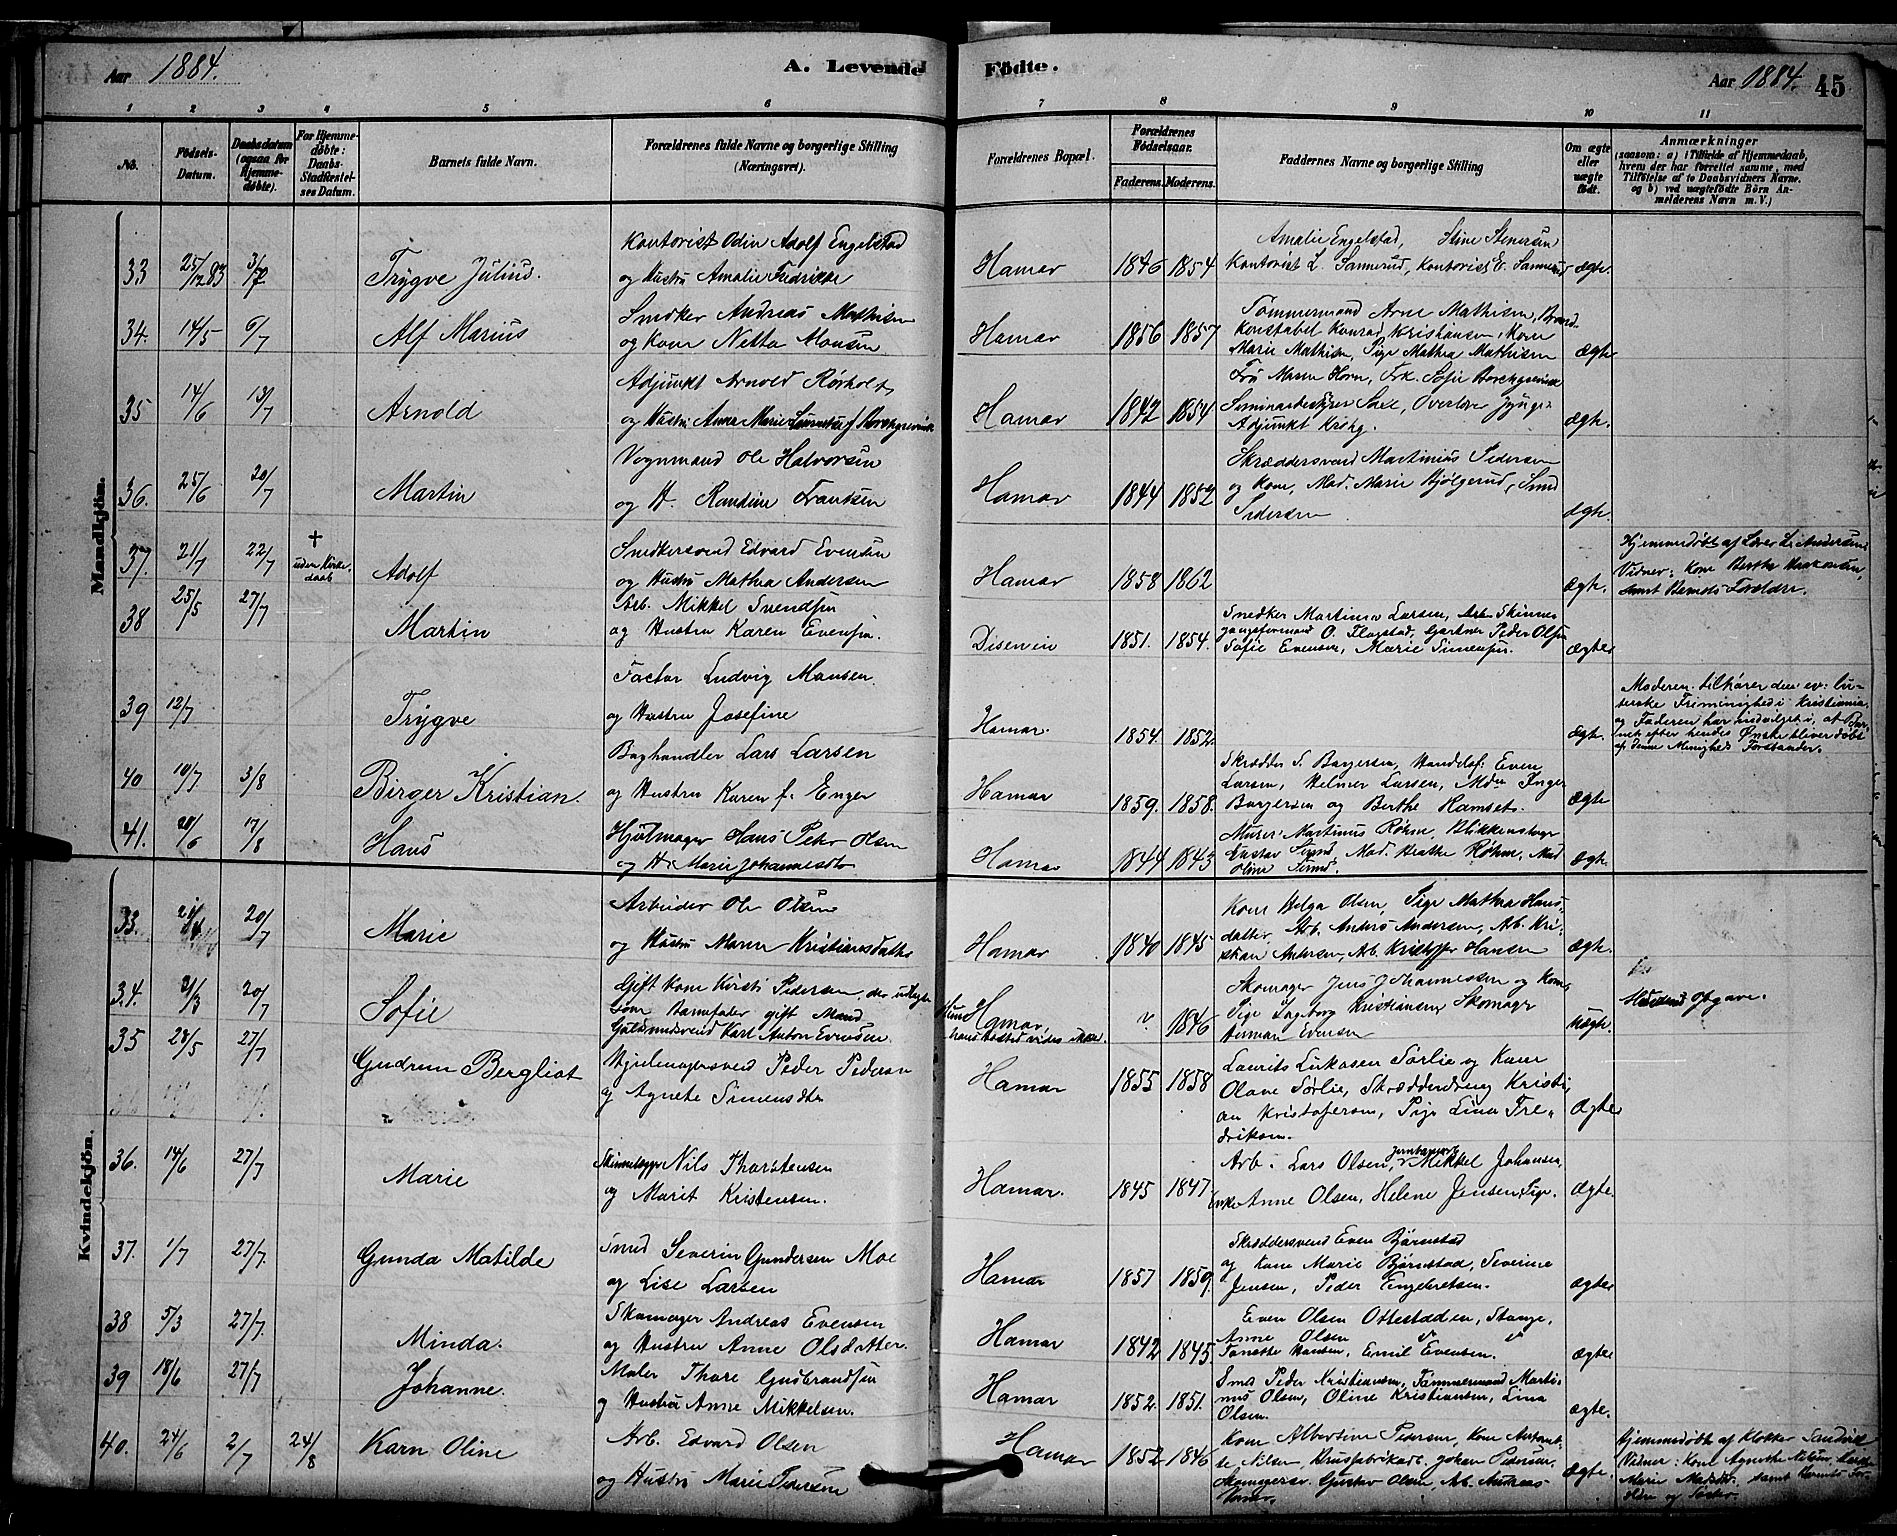 Aar 1884.
A. Levende Fødte.
Aar 1884. 45
1 2 3 4 5 6 7 8 9 10 11
No.
Fødsels-Datum.
Daabsdatum (ogsaa for Hjemmedøbte).
For Hjemmedøbte: Daabs-Stadfæstelses Datum.
Barnets fulde Navn.
Forældrenes fulde Navne og borgerlige Stilling (Næringsvei).
Forældrenes Bopæl.
Forældrenes Fødselsaar.
Faderens. Moderens.
Faddernes Navne og borgerlige Stilling
Om ægte eller uægte født.
Anmærkninger
(saasom: a) i Tilfælde af Hjemmedaab,
hvem der har forrettet samme, med
Tilføielse af to Daabsvidners Navne.
og b) ved uægtefødte Børn An-
melderens Navn m. V.)
Mandkjön.
Kontorist Odin Adolf Engelstad
Amalie Engelstad, Stine Stenersen
33 25/12 83 Trygve Julius.
og Hustru Amalie Fredrikke
Hamar 1846 1854
Kontorist L. Sannerud, Kontorist E. Sannerud
ægte.
Snedker Andreas Mathisen
Tømmermand Arne Mathisen,
34. 14/5 6/7 Alf Marius
og Kone Netta Monsen
Hamar 1856 1857
konstabel Konrad Kristiansen, Kone
Marie Mathisen, Pige Mathea Mathisen
ægte
Adjunkt Arnold Rørholt
Fru Maren Horn, Frk. Sofie Borchgrevink
35 14/6 13/7 Arnold
og Hustru Anna Marie f Borchgrevink
Hamar 1842 1854
Seminariebestyrer Saxe, Overlærer
Adjunkt
ægte.
Vognmand Ole Halvorsen
Skræddersvend Martinius Pedersen
36. 25/6 20/7 Martin
og H. Randine Frantsen
Hamar 1844 1852
og Kone, Mad. Marie Smed
Pedersen
ægte.
37. 21/7 22/7 † uden Kirkedaab Adolf
Snedkersvend Edvard Evensen
og Hustru Mathea Andersen
Hamar 1858 1862 ægte.
Hjemmedøbt af Andersen
Vidner: Kone Berthe
samt Barnets Forældre.
38 25/5 27/7 Martin
Arb. Mikkel Svendsen
og Hustru Karen Evensen.
Disenvin 1851. 1854.
Snedker Martinus Larsen,
O. Flagstad, Gartner Peder Olsen
Sofie Evensen, Marie Simensen.
ægte
Factor Ludvig Mansen
39 12/7 Trygve
og Hustru Josefine
Hamar. 1854. 1852. ægte.
Moderen tilhører den ev: lu-
therske Frimenighed i Kristiania
og Faderen har indvilget i, at Bar-
net efter hendes Ønske bliver døbt
af denne Menigheds Forstander.
40 10/7 3/8 Birger Kristian.
Boghandler Lars Larsen
og Hustru Karen f. Enger
Hamar 1859. 1858.
Skrædder S. Børgersen, Handelsf. Even
Larsen, Helmer Larsen, Mdm Inger
Børgersen og Berthe Hamset.
ægte
41. 20/6 17/8 Hans
Hjulmager Hans Petr Olsen
og H. Marie Johannesdtr
Hamar 1844 1843
Murer Martinus Røhne, Blikkenslager
Gustav Mad. Røhne, Mad
Oline
ægte
Kvindekjön.
Arbeider Ole Olsen
Kone Helga Olsen, Pige Mathea Hans-
33. 20/7 Marie
og Hustru Maren Kristiansdatter
Hamar 1840 1845
datter, Arb. Anders Andersen, Arb. Kri-
stian Andersen, Arb. Kristoffer Hansen
ægte.
34. 21/3 20/7 Sofie
Gift Kone Kirsti Pedersen, der udlagde
som Barnefader gift Mand
Guldsmedsvend Karl Anton Evensen.
Hamar, hans Bosted vides ikke.
? 1846
Skomager Jens Johannessen og Kone
Pige Ingeborg Kristiansen, Skomager
Herman Evensen
Uægte.
Moderens Opgave.
35 28/5 27/7 Gudrun Bergliot
Hjulmagersvend Peder Pedersen
og Agnete Simensdtr
Hamar 1855 1858
Laurits Lukasen Sørlie og Kone
Olave Sørlie, Skrædderdreng Kristi-
an Kristofersen, Pige Lina Fre-
driksen.
Ægte
36. 14/6 27/7 Marie
Nils Thorstensen
og Marit Kristensen.
Hamar. 1845 1847
Arb. Lars Olsen, Mikkel Johansen,
Enke Anne Olsen, Helene Jensen, Pige.
ægte.
37. 1/7 27/7. Gunda Matilde
Smed Severin Gundersen Moe
og Lise Larsen
Hamar 1857 1859.
Skræddersvend Even Bjørnstad
og Kone Marie Bjørnstad, Severine
Jensen, Peder Engebretsen.
ægte
38 5/3 27/7. Minda.
Skomager Andreas Evensen
og Hustru Anne Olsdatter.
Hamar 1842 1845.
Even Olsen Ottestaden, Stange,
Anne Olsen
Tonette Hansen, Emil Evensen.
ægte
39 18/6 27/7 Johanne.
Maler Thore Gudbrandsen
og Hustru Anne Mikkelsen.
Hamar 1852. 1851.
Smed Peder Kristiansen, Tømmermand Marti-
nus Olsen, Oline Kristiansen, Lina
Olsen.
ægte.
40. 24/6 2/7 24/8 Karn Oline
Arb. Edvard Olsen
og Hustru Marie Pedersen
Hamar 1852 1846
Kone Albertine Pedersen, Kone
Nilsen, Johan Pedersen,
Skomagersv. Gustav Olsen, Arb. Andreas
ægte.
Hjemmedøbt af Klokker
Vidner: Kone Agnethe Nilsen,
Marie samt Barnets For-
ældre og